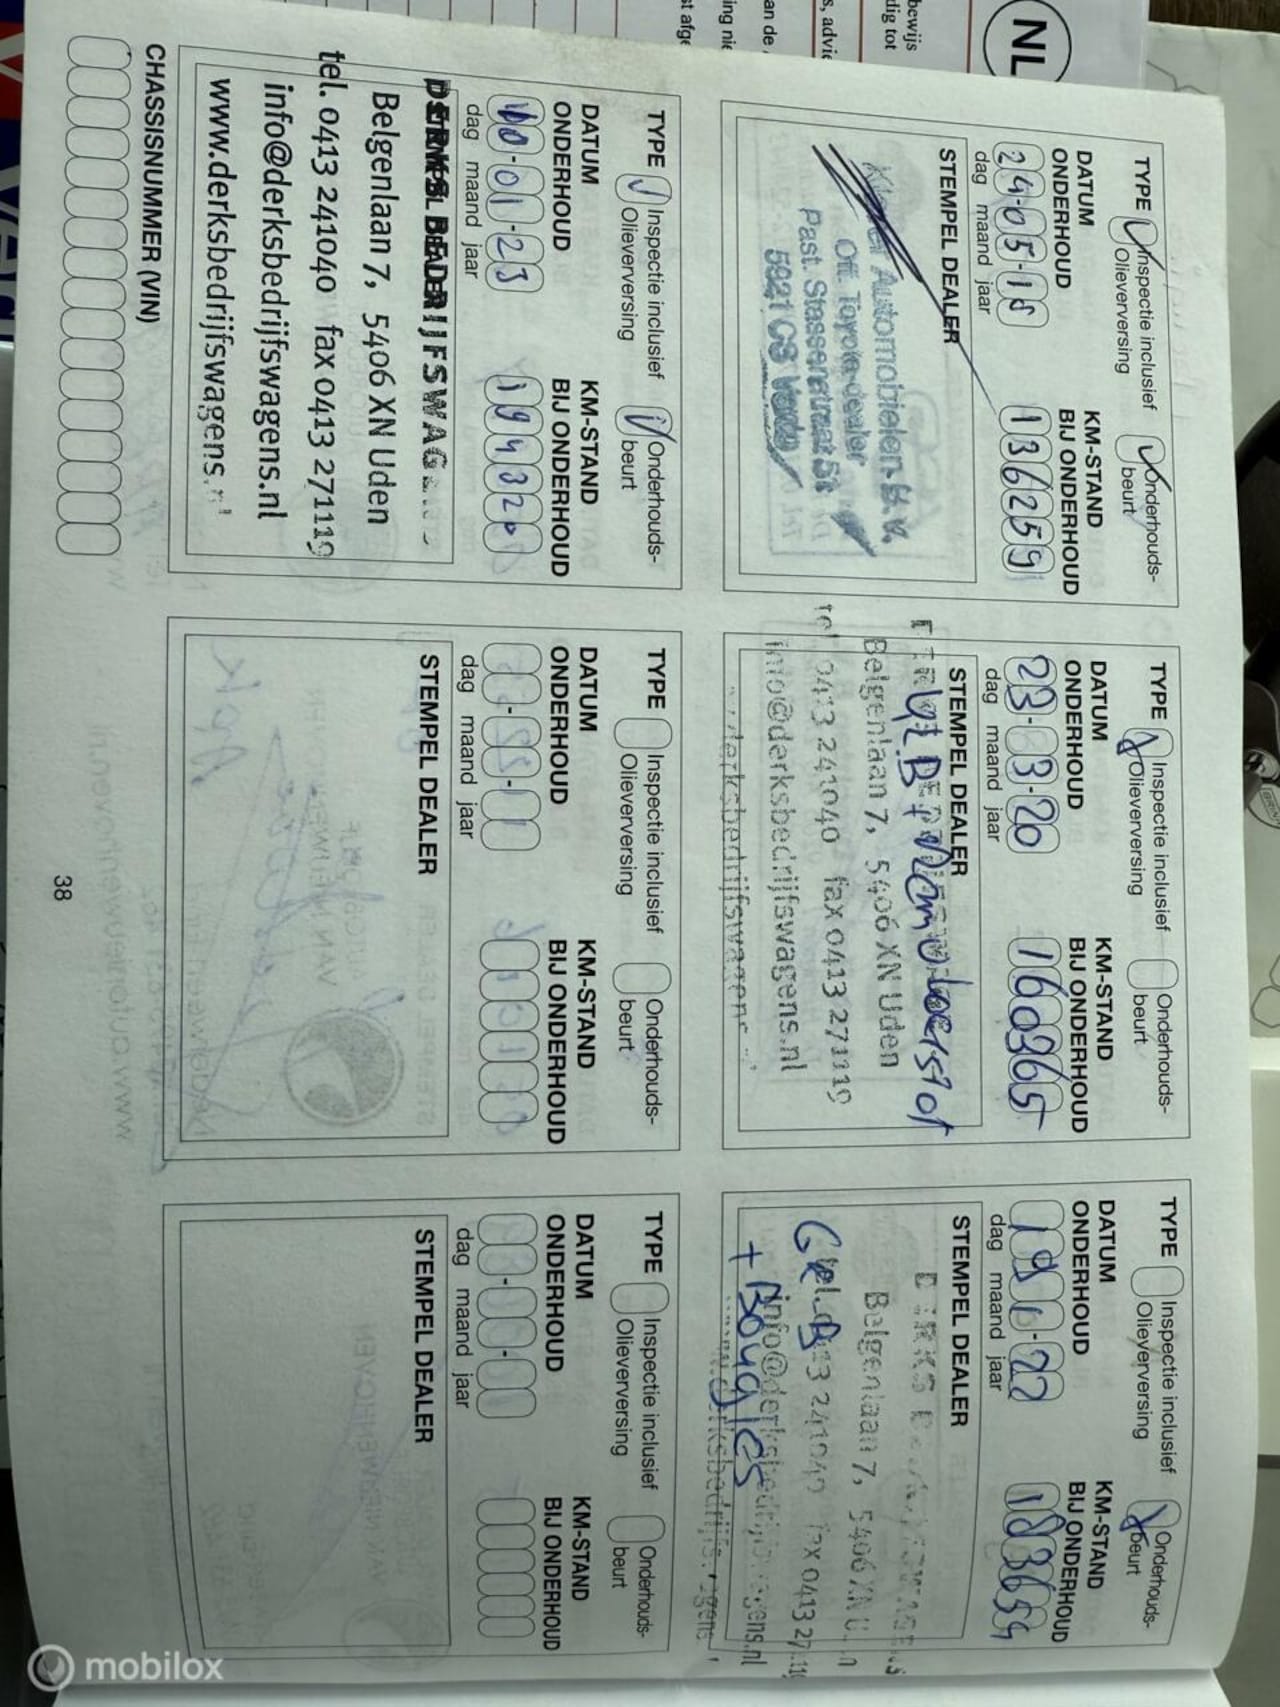 NL
bewijs
dig tot
s, advie
an de
ing nie
st afge
TYPE Inspectie inclusief Olieverversing Onderhouds-beurt
DATUM ONDERHOUD KM-STAND BIJ ONDERHOUD
24-05-18 136259
dag maand jaar
STEMPEL DEALER
Automobielen B.V.
Off. Toyota-dealer
Past.
5921 GS
TYPE Inspectie inclusief Olieverversing Onderhouds-beurt
DATUM ONDERHOUD KM-STAND BIJ ONDERHOUD
23-3-20 160365
dag maand jaar
STEMPEL DEALER
Belgenlaan 7, 5406 XN Uden
tel 0413 241040 fax 0413 271119
info@derksbedrijfswagens.nl
TYPE Inspectie inclusief Olieverversing Onderhouds-beurt
DATUM ONDERHOUD KM-STAND BIJ ONDERHOUD
19 1-22 183659
dag maand jaar
STEMPEL DEALER
DERKS
Belgenlaan 7, 5406 XN
241040 fax 0413
info@derksbedrijfswagens.nl
+ Bougies
TYPE Inspectie inclusief Olieverversing Onderhouds-beurt
DATUM ONDERHOUD KM-STAND BIJ ONDERHOUD
10-01-23 194320
dag maand jaar
Belgenlaan 7, 5406 XN Uden
tel. 0413 241040 fax 0413 271119
info@derksbedrijfswagens.nl
www.derksbedrijfswagens.nl
TYPE Inspectie inclusief Olieverversing Onderhouds-beurt
DATUM ONDERHOUD KM-STAND BIJ ONDERHOUD
dag maand jaar
STEMPEL DEALER
TYPE Inspectie inclusief Olieverversing Onderhouds-beurt
DATUM ONDERHOUD KM-STAND BIJ ONDERHOUD
dag maand jaar
STEMPEL DEALER
CHASSISNUMMER (VIN)
38
mobilox